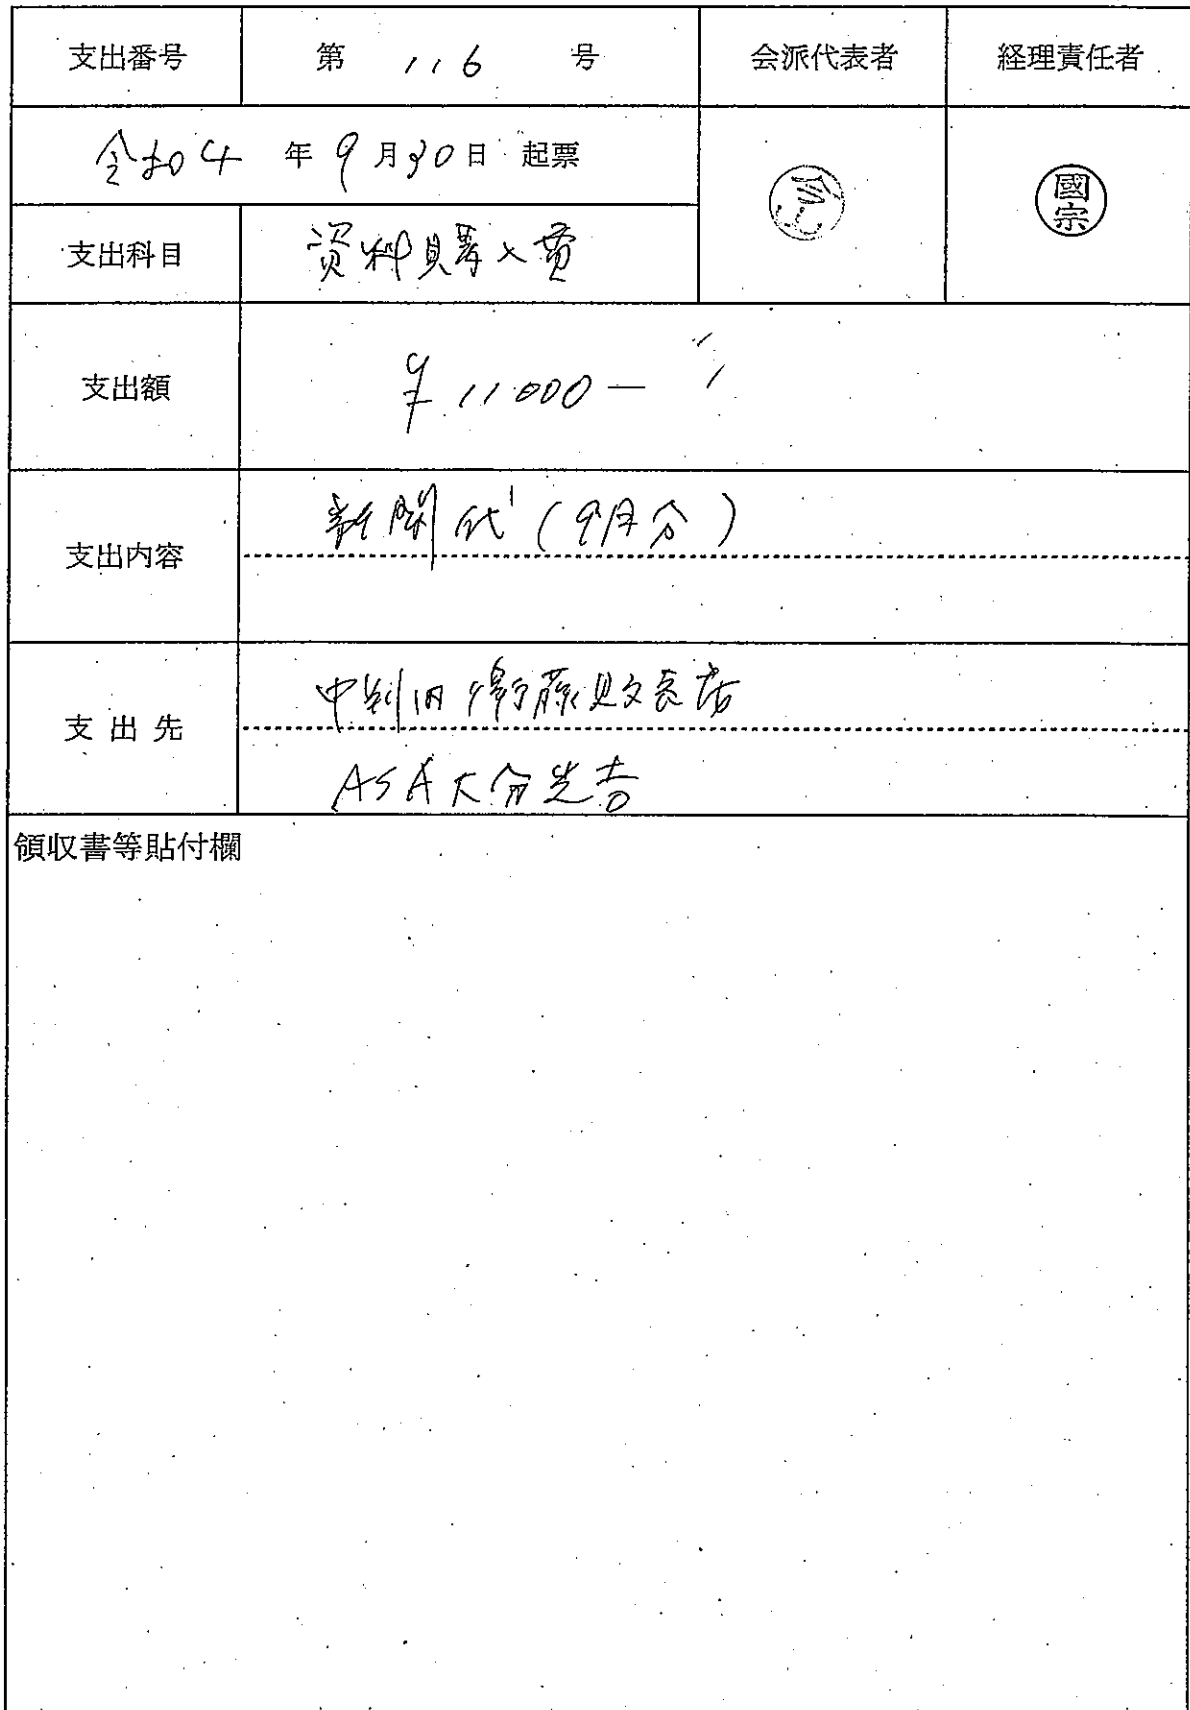 支出番号 第 116 号 会派代表者 経理責任者
令和4年9月30日 起票
國宗
支出科目 資料購入費
支出額 ¥11000-
支出内容 新聞代(9月分)
支出先 中判田 衛藤販売店
ASA大分光吉
領収書等貼付欄